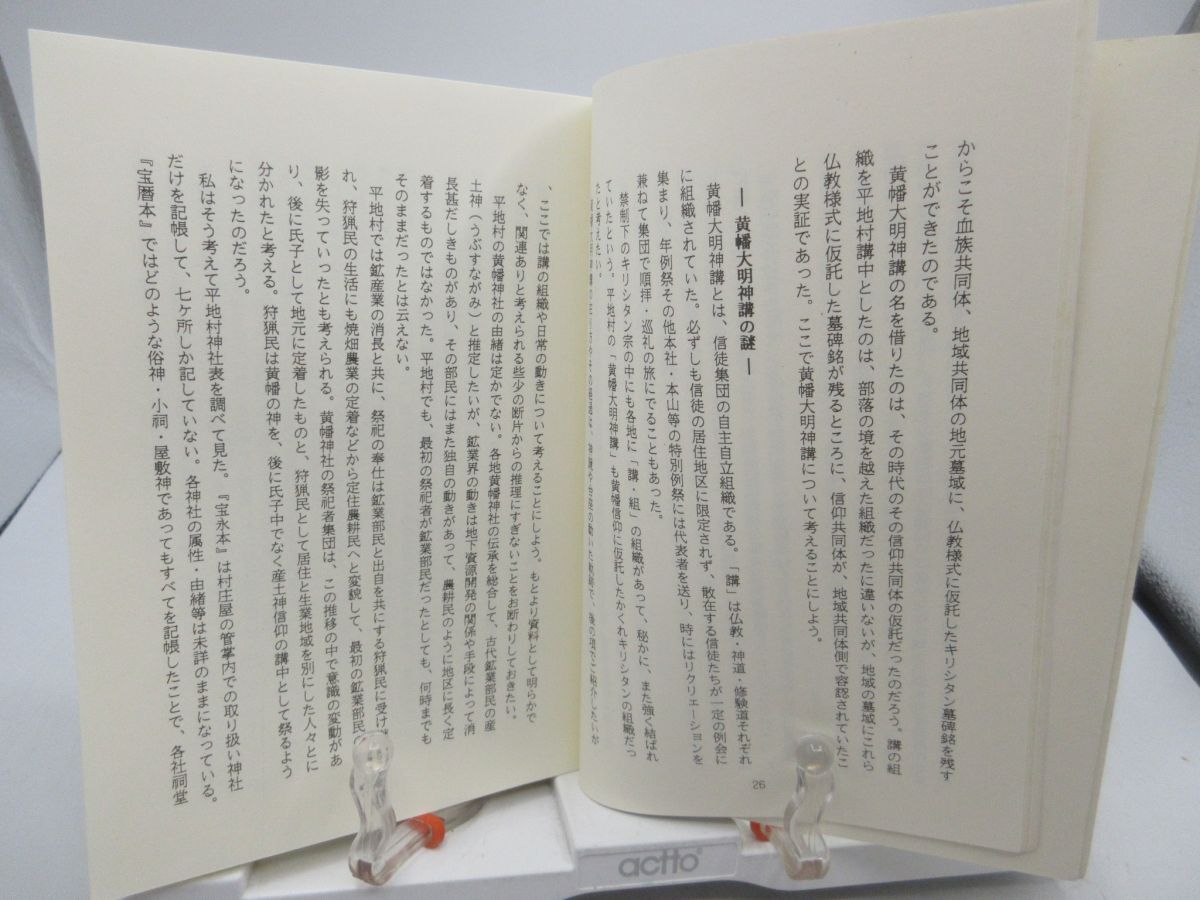 からこそ血族共同体、地域共同体の地元墓域に、仏教様式に仮託したキリシタン墓碑銘を残す
ことができたのである。
黄幡大明神講の名を借りたのは、その時代のその信仰共同体の仮託だったのだろう。講の組
織を平地村講中としたのは、部落の境を越えた組織だったに違いないが、地域の墓域にこれら
仏教様式に仮託した墓碑銘が残るところに、信仰共同体が、地域共同体側で容認されていたこ
との実証であった。ここで黄幡大明神講について考えることにしよう。
― 黄幡大明神講の謎 ―
黄幡大明神講とは、信徒集団の自主自立組織である。「講」は仏教・神道・修験道それぞれ
に組織されていた。必ずしも信徒の居住地区に限定されず、散在する信徒たちが一定の例会に
集まり、年例祭その他本社・本山等の特別例祭には代表者を送り、時にはリクリエーションを
兼ねて集団で順拝・巡礼の旅にでることもあった。
禁制下のキリシタン宗の中にも各地に「講・組」の組織があって、秘かに、また強く結ばれ
ていたという。平地村の「黄幡大明神講」も黄幡信仰に仮託したかくれキリシタンの組織だっ
たと考えたい。
26
、ここでは講の組織や日常の動きについて考えることにしよう。もとより資料として明らかで
なく、関連ありと考えられる些少の断片からの推理にすぎないことをお断わりしておきたい。
平地村の黄幡神社の由緒は定かでない。各地黄幡神社の伝承を総合して、古代鉱業部民の産
土神（うぶすながみ）と推定したいが、鉱業界の動きは地下資源開発の関係や手段によって消
長甚だしきものがあり、その部民にはまた独自の動きがあって、農耕民のように地区に長く定
着するものではなかった。平地村でも、最初の祭祀者が鉱業部民だったとしても、何時までも
そのままだったとは云えない。
平地村では鉱産業の消長と共に、祭祀の奉仕は鉱業部民と出自を共にする狩猟民に受け
れ、狩猟民の生活にも焼畑農業の定着などから定住農耕民へと変貌して、最初の鉱業部民の
影を失っていったとも考えられる。黄幡神社の祭祀者集団は、この推移の中で意識の変動があ
り、後に氏子として地元に定着したものと、狩猟民として居住と生業地域を別にした人々とに
分かれたと考える。狩猟民は黄幡の神を、後に氏子中でなく産土神信仰の講中として祭るよう
になったのだろう。
私はそう考えて平地村神社表を調べて見た。『宝永本』は村庄屋の管掌内での取り扱い神社
だけを記帳して、七ケ所しか記していない。各神社の属性・由緒等は未詳のままになっている。
『宝暦本』ではどのような俗神・小祠・屋敷神であってもすべてを記帳したことで、各社祠堂
actto